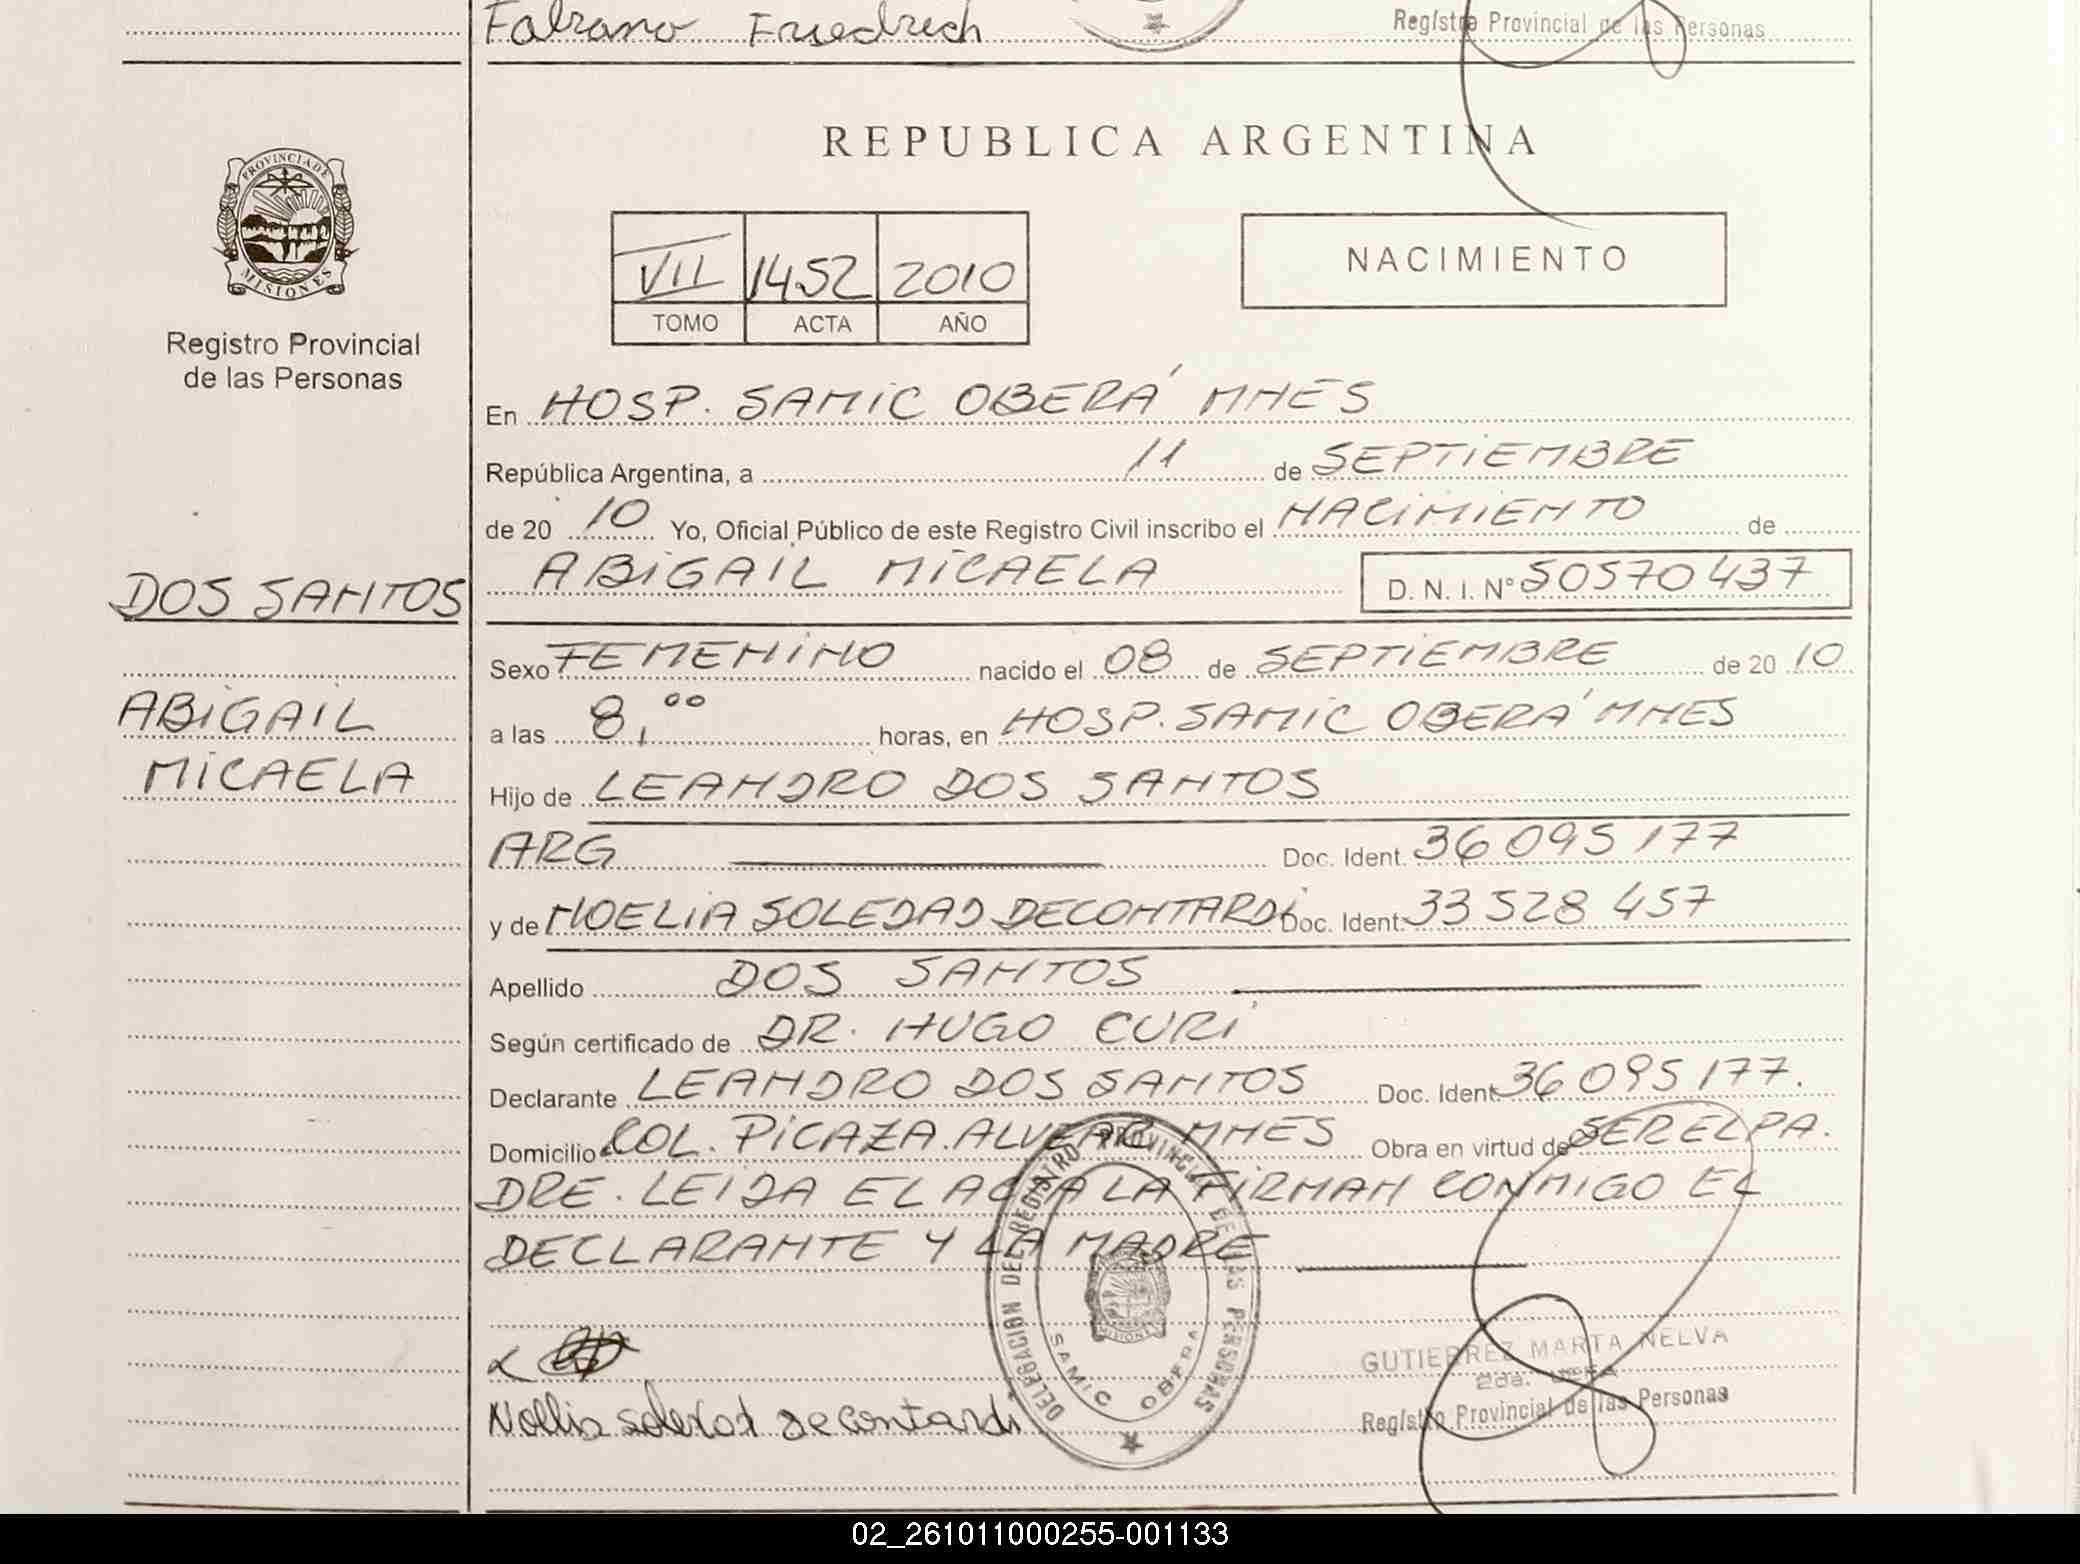 Fabiano Friedrich
Registro Provincial de las Personas
REPUBLICA ARGENTINA
PROVINCIA DE
MISIONES
Registro Provincial
de las Personas
VII 1452 2010
TOMO ACTA AÑO
NACIMIENTO
En HOSP. SAMIC OBERÁ MNES
República Argentina, a 11 de SEPTIEMBRE
de 20 10 Yo, Oficial Público de este Registro Civil inscribo el NACIMIENTO de
ABIGAIL MICAELA D. N. I. Nº 50570437
DOS SANTOS
ABIGAIL
MICAELA
Sexo FEMENINO nacido el 08 de SEPTIEMBRE de 20 10
a las 8,00 horas, en HOSP. SAMIC OBERÁ MNES
Hijo de LEANDRO DOS SANTOS
ARG Doc. Ident. 36 095 177
y de NOELIA SOLEDAD DECONTARDI Doc. Ident. 33 528 457
Apellido DOS SANTOS
Según certificado de DR. HUGO CURI
Declarante LEANDRO DOS SANTOS Doc. Ident. 36 095 177.
Domicilio COL. PICAZA. ALVEAR MNES Obra en virtud de SER EL PA.
DRE. LEIDA EL ACTA LA FIRMAN CONMIGO EL
DECLARANTE Y LA MADRE
DELEGACION DEL REGISTRO PROVINCIAL DE LAS PERSONAS
SAMIC OBERA
MISIONES
GUTIERREZ MARTA NELVA
2da.
Registro Provincial de las Personas
Nollia soledad decontardi
02_261011000255-001133